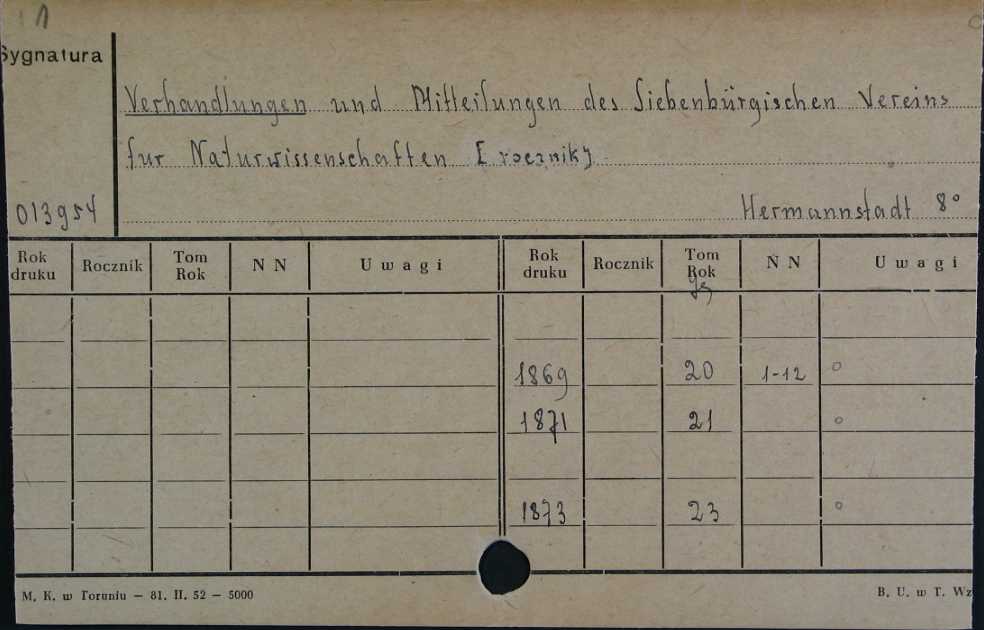 1
Sygnatura
Verhandlungen und Mitteilungen des Siebenbürgischen Vereins
fur Naturwissenschaften [rocznik]
013954
Hermannstadt 8°
Rok druku Rocznik Tom Rok N N Uwagi Rok druku Rocznik Tom Rok N N Uwagi
Jg
1869 20 1-12 o
1871 21 o
1873 23 o
M. K. w Toruniu — 81. II. 52 — 5000 B. U. w T. Wz